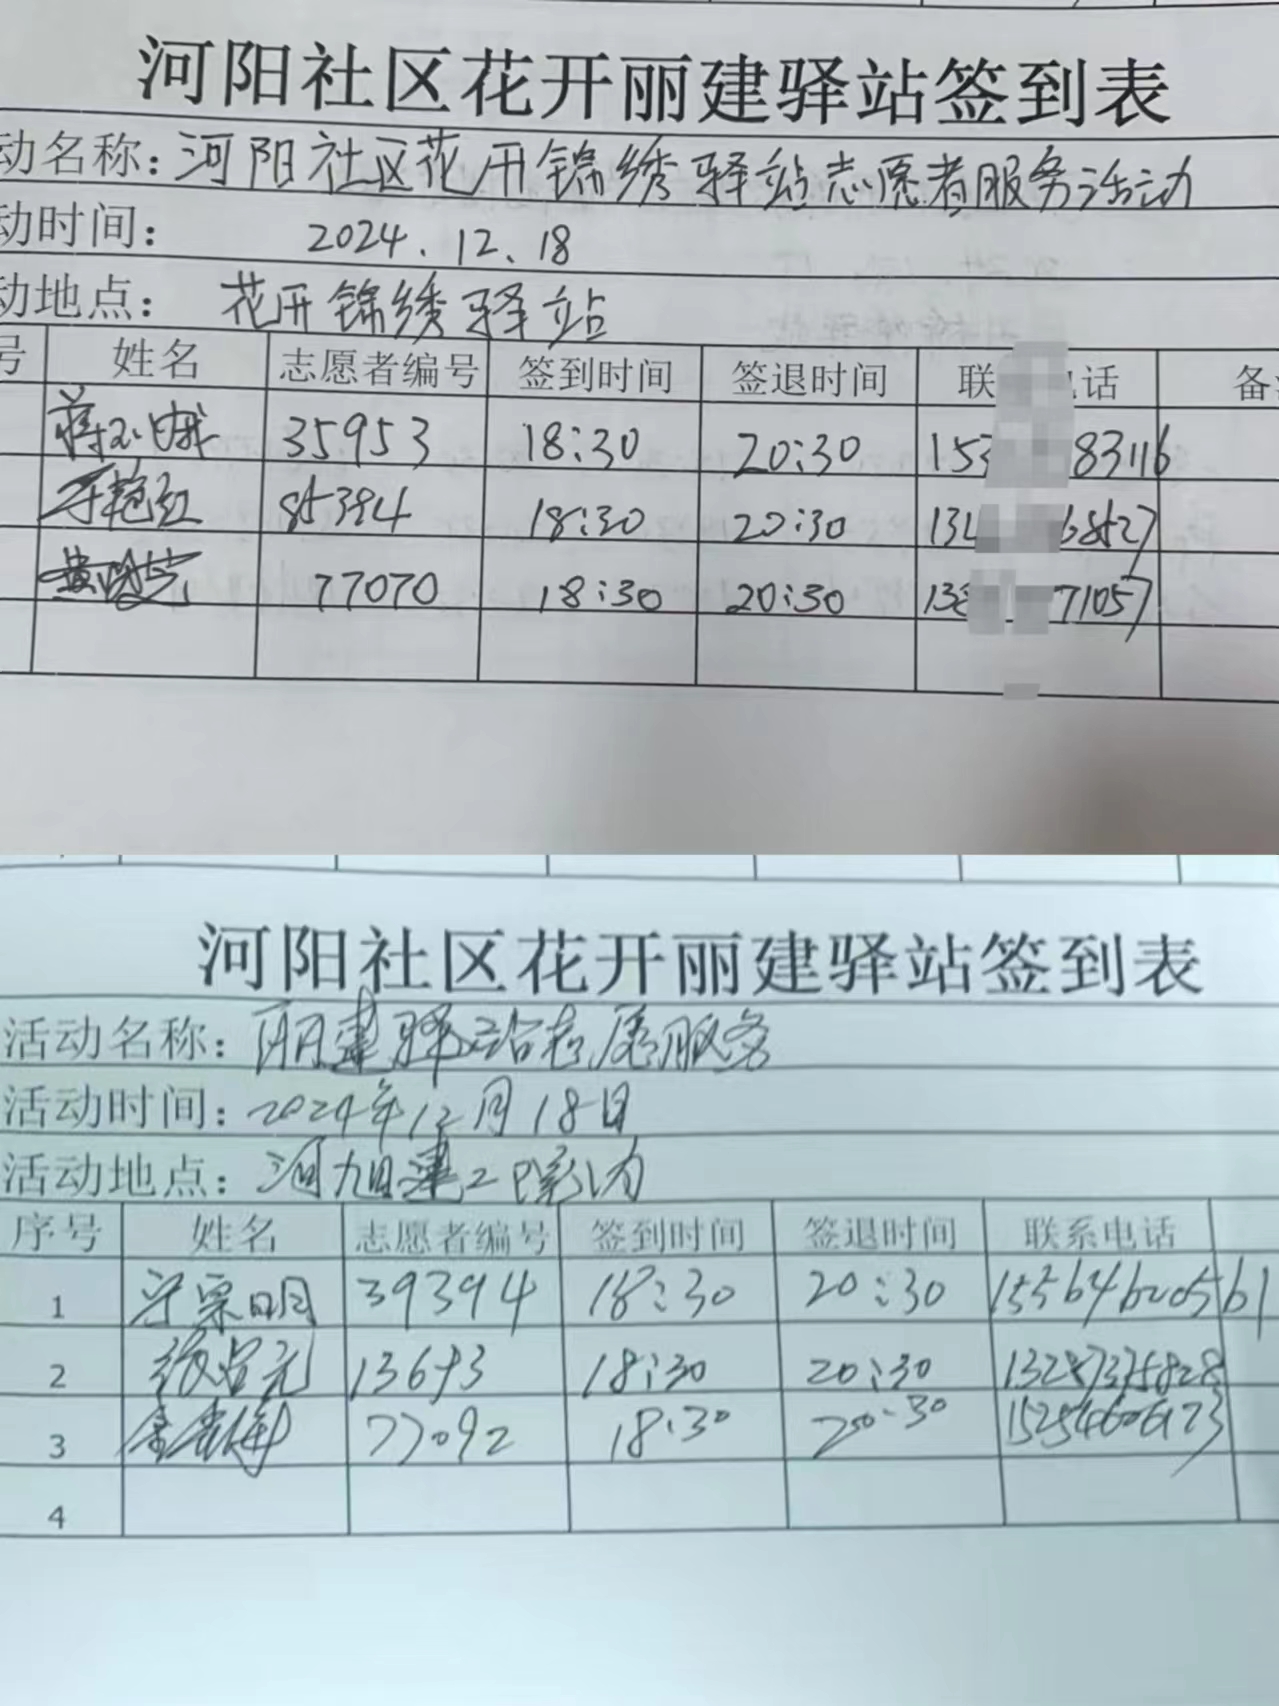 河阳社区花开丽建驿站签到表
动名称：河阳社区花开锦绣驿站志愿者服务活动
动时间： 2024.12.18
动地点： 花开锦绣驿站
号 姓名 志愿者编号 签到时间 签退时间 联 话 备
35953 18:30 20:30 153 83116
于艳红 85394 18:30 20:30 13 68527
77070 18:30 20:30 138 71057
河阳社区花开丽建驿站签到表
活动名称：丽建驿站志愿服务
活动时间：2024年12月18日
活动地点：河旭建工院内
序号 姓名 志愿者编号 签到时间 签退时间 联系电话
1 39394 18:30 20:30
2 18:30 20:30 13287375828
3 77092 18:30 20:30
4